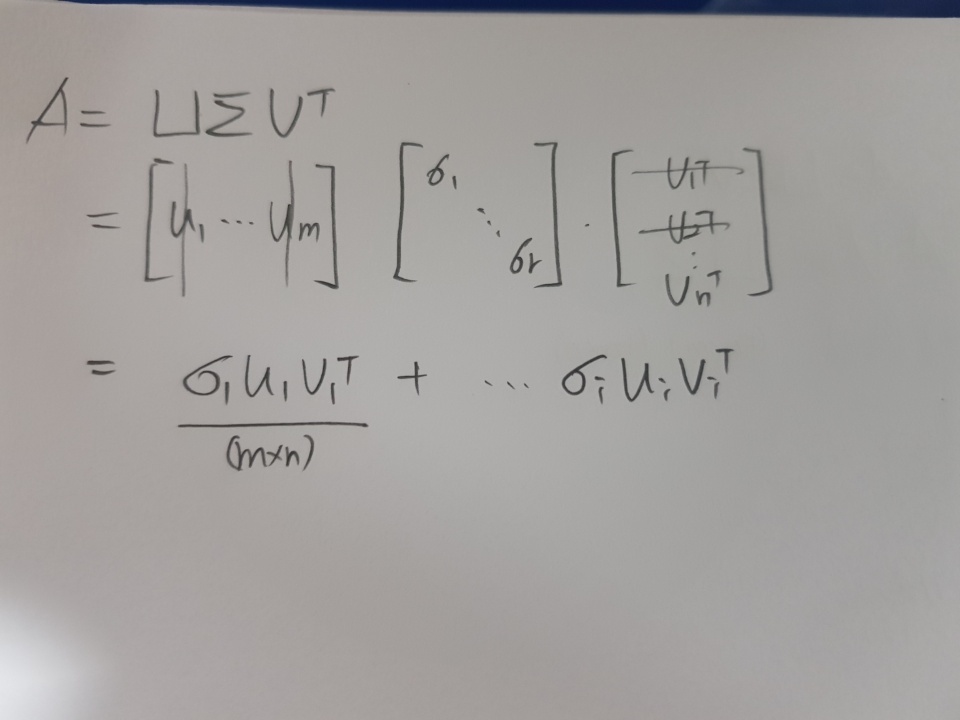 A = UΣV^T
= [u₁ ... uₘ] [σ₁ ⋱ σr] · [v₁ᵀ v₂ᵀ ⋮ vₙᵀ]
= σ₁u₁v₁ᵀ + ... σᵢuᵢvᵢᵀ
(m×n)